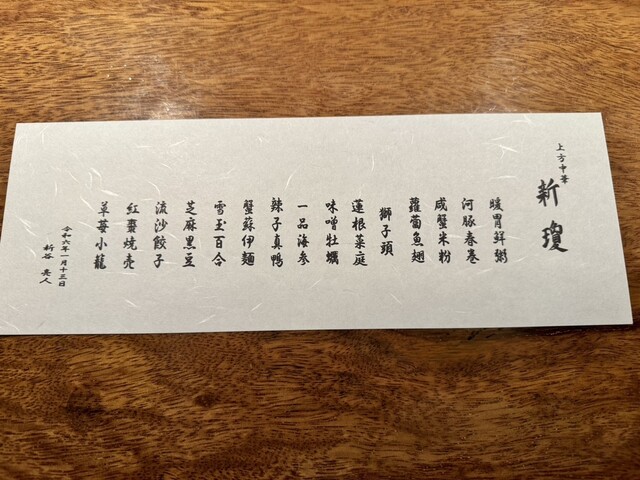 上方中華
新瓊
暖胃鮮粥
河豚春巻
咸蟹米粉
蘿蔔魚翅
獅子頭
蓮根菜庭
味噌牡蠣
一品海参
辣子真鴨
蟹蘇伊麺
雪玉百合
芝麻黒豆
流沙餃子
紅棗焼売
草莓小籠
令和六年一月十三日
新谷 英人